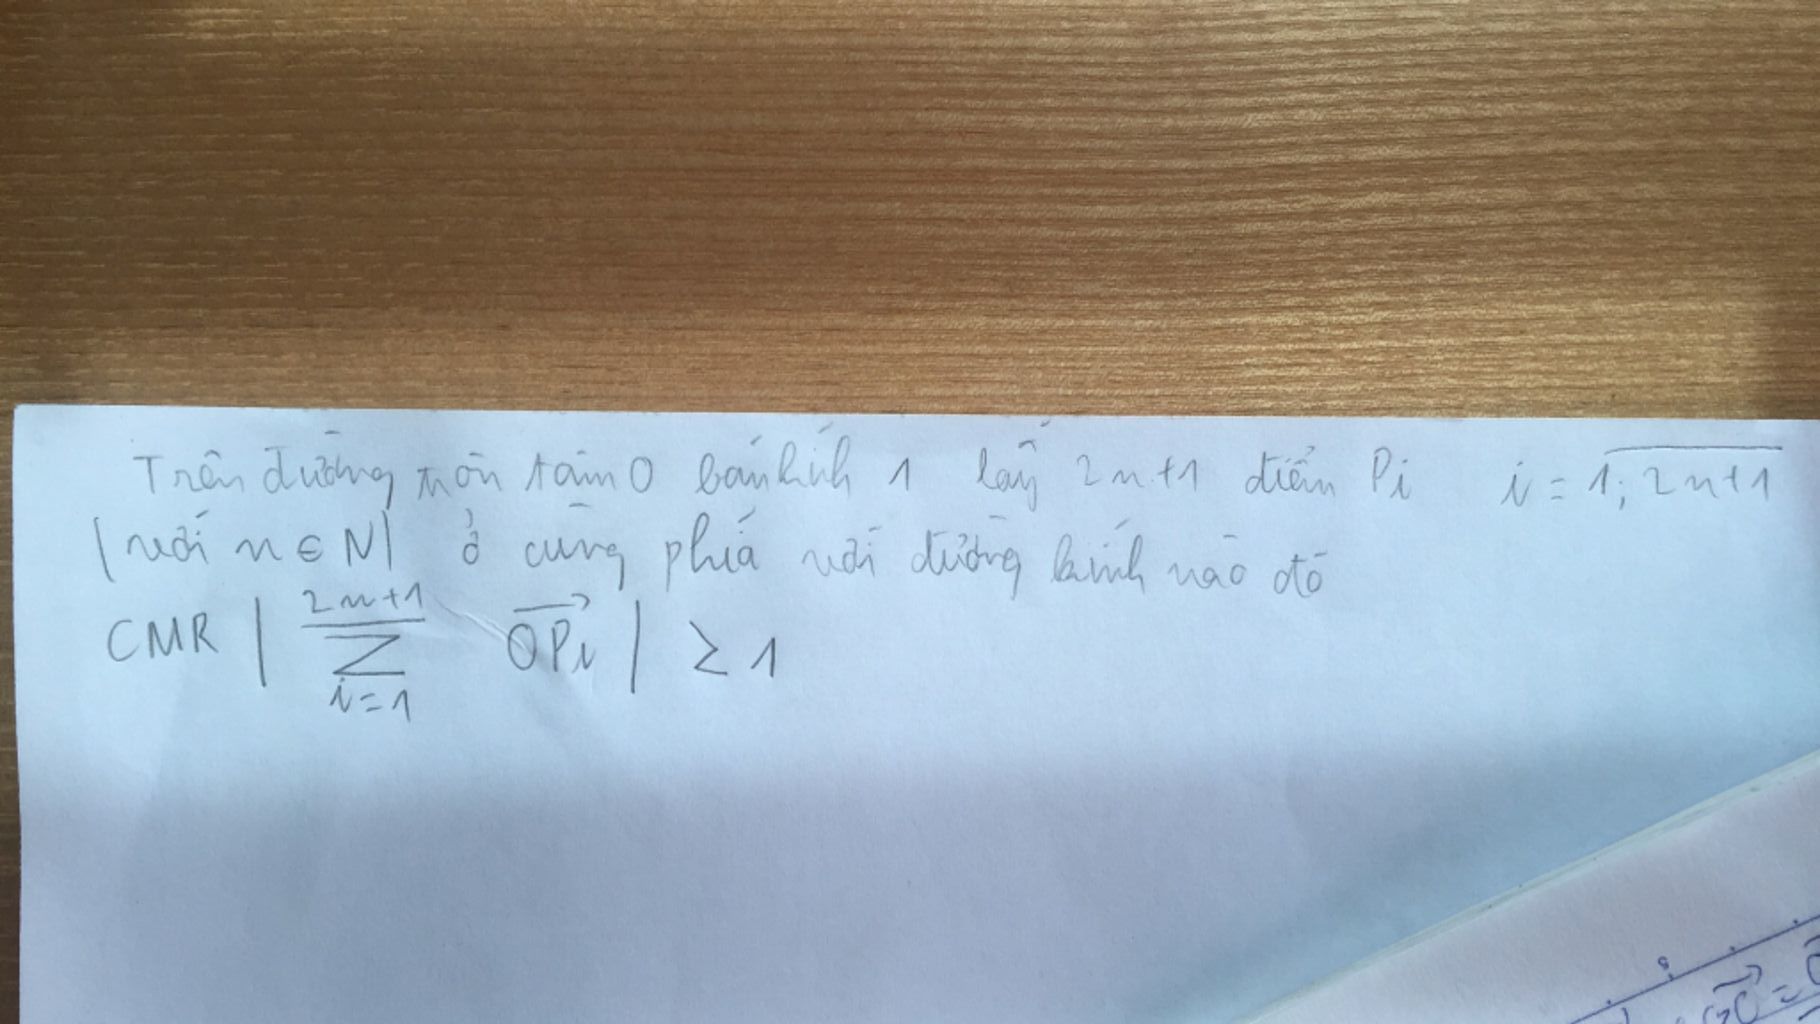 Trên đường tròn tâm O bán kính 1 lấy 2n+1 điểm Pi i = \overline{1; 2n+1}
(với n ∈ N) ở cùng phía với đường kính nào đó
CMR | \sum_{i=1}^{2n+1} \overrightarrow{OPi} | ≥ 1